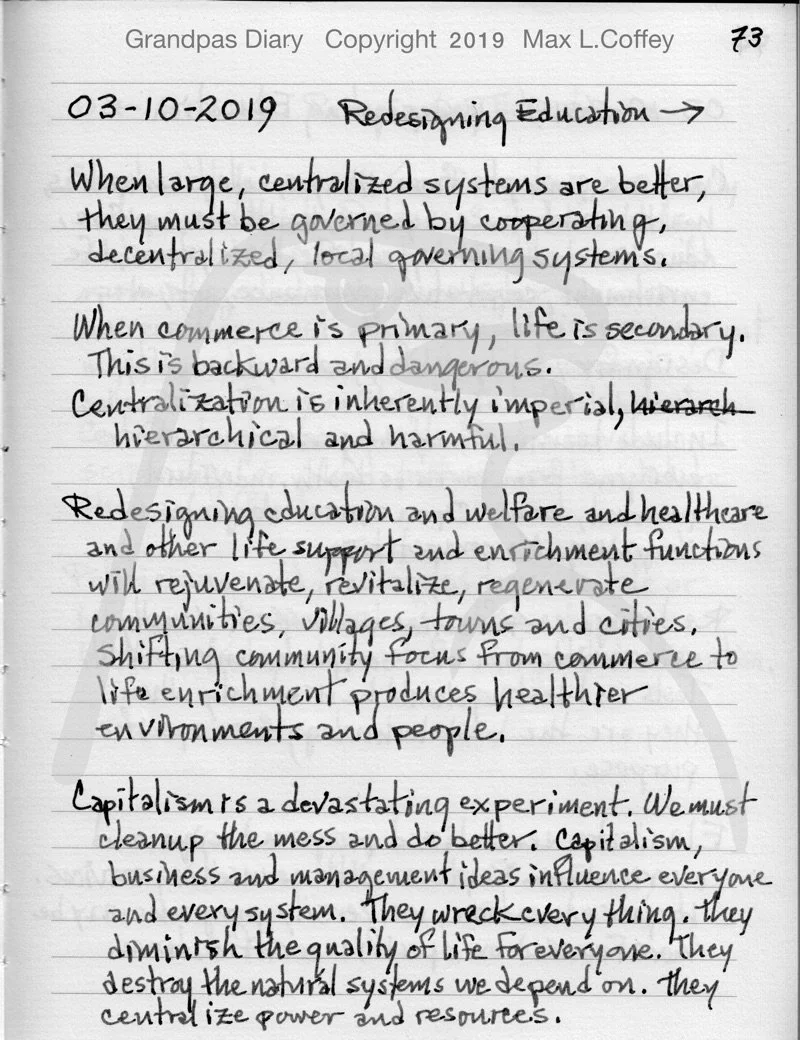 Grandpas Diary Copyright 2019 Max L.Coffey 73
03-10-2019 Redesigning Education →
When large, centralized systems are better,
they must be governed by cooperating,
decentralized, local governing systems.
When commerce is primary, life is secondary.
This is backward and dangerous.
Centralization is inherently imperial, hierarch
hierarchical and harmful.
Redesigning education and welfare and healthcare
and other life support and enrichment functions
will rejuvenate, revitalize, regenerate
communities, villages, towns and cities.
Shifting community focus from commerce to
life enrichment produces healthier
environments and people.
Capitalism is a devastating experiment. We must
cleanup the mess and do better. Capitalism,
business and management ideas influence everyone
and every system. They wreck every thing. They
diminish the quality of life for everyone. They
destroy the natural systems we depend on. They
centralize power and resources.